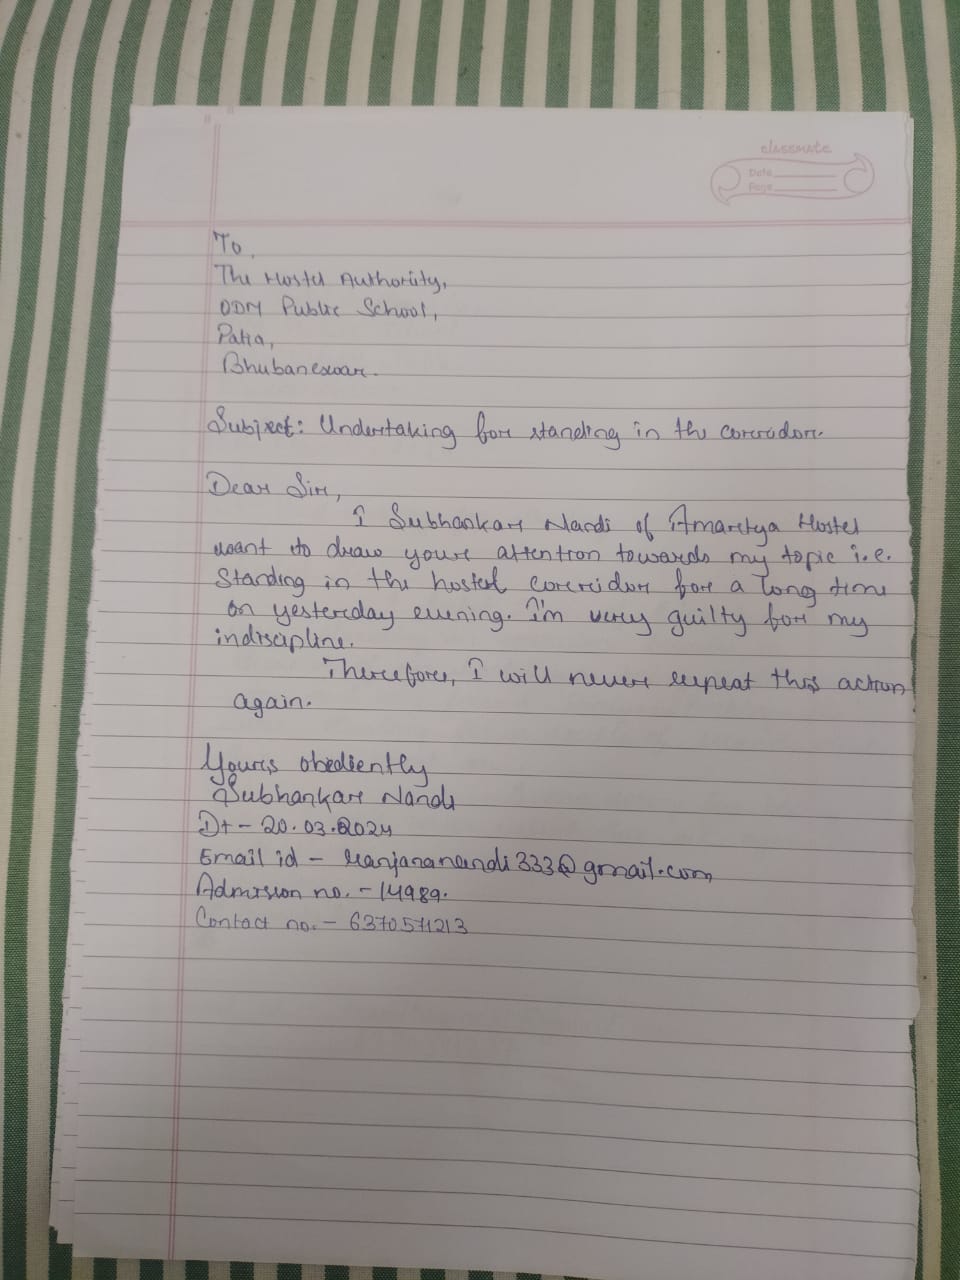 classmate
Date
Page
To,
The Hostel Authority,
ODM Public School,
Patia,
Bhubaneswar.
Subject: Undertaking for standing in the corridor.
Dear Sir,
I Subhankar Nandi of Amartya Hostel
want to draw your attention towards my topic i.e.
Standing in the hostel corridor for a long time
on yesterday evening. I'm very guilty for my
indiscipline.
Therefore, I will never repeat this action
again.
Yours obediently
Subhankar Nandi
Dt - 20.03.2024
Email id - ranjananandi333@gmail.com
Admission no. - 14989.
Contact no. - 6370571213